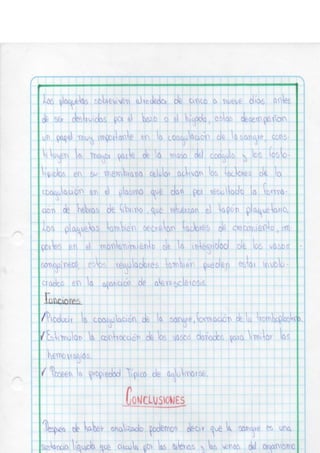 Las plaquetas sobreviven alrededor de cinco a nueve días antes
de ser destruidas por el bazo o el hígado, estas desempeñan
un papel muy importante en la coagulación de la sangre, cons-
tituyen la mayor parte de la masa del coagulo y los fosfo-
lípidos en su membrana celular activan los factores de la
coagulación en el plasma que dan por resultado la forma-
ción de hebras de fibrina, que refuerzan el tapón plaquetario.
Las plaquetas tambien secretan factores de crecimiento, im
portes en el mantenimiento de la integridad de los vasos
sanguíneos, estos reguladores tambien pueden estar involu-
crados en la aparición de aterosclerosis.
Funciones
✓Producir la coagulación de la sangre, formación de la tromboplastina
✓Estimulan la contracción de los vasos dañados para limitar las
hemorragias.
✓ Poseen la propiedad Típica de aglutinarse.
CONCLUSIONES
Después de haber analizado podemos decir que la sangre es una
sustancia líquida que circula por las arterias y las venas del organismo